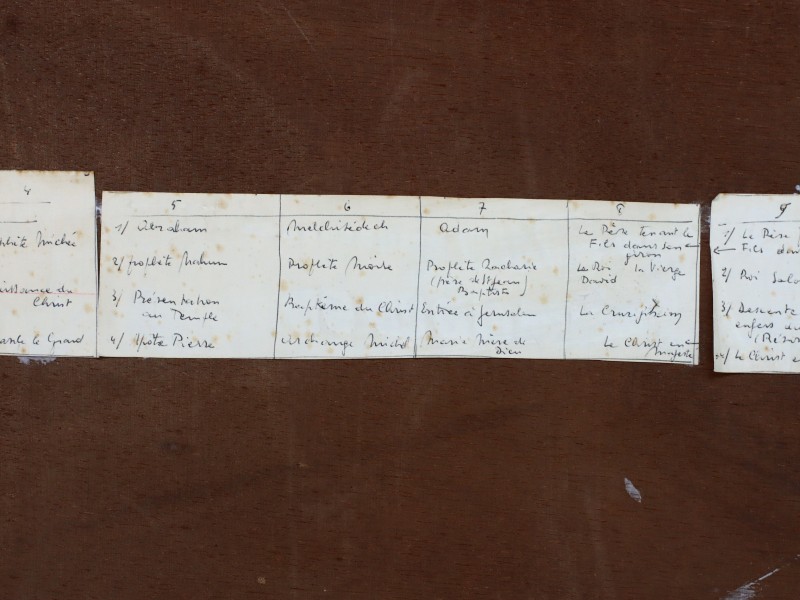 4
Michée
Christ
le Grand
5
1/ Abraham
2/ prophète Nahum
3/ Présentation
au Temple
4/ Apôtre Pierre
6
Melchisédech
Prophète Moïse
Baptême du Christ
Archange Michel
7
Adam
Prophète Zacharie
(père de St Jean
Baptiste
Entrée à Jerusalem
Marie Mère de
Dieu
8
Le Père tenant le
Fils dans son
giron
Le Roi la Vierge
David
La Crucifixion
Le Christ en
9
1/ Le Père
Fils
2/ Roi
3/ Descente
enfers
4/ Le Christ